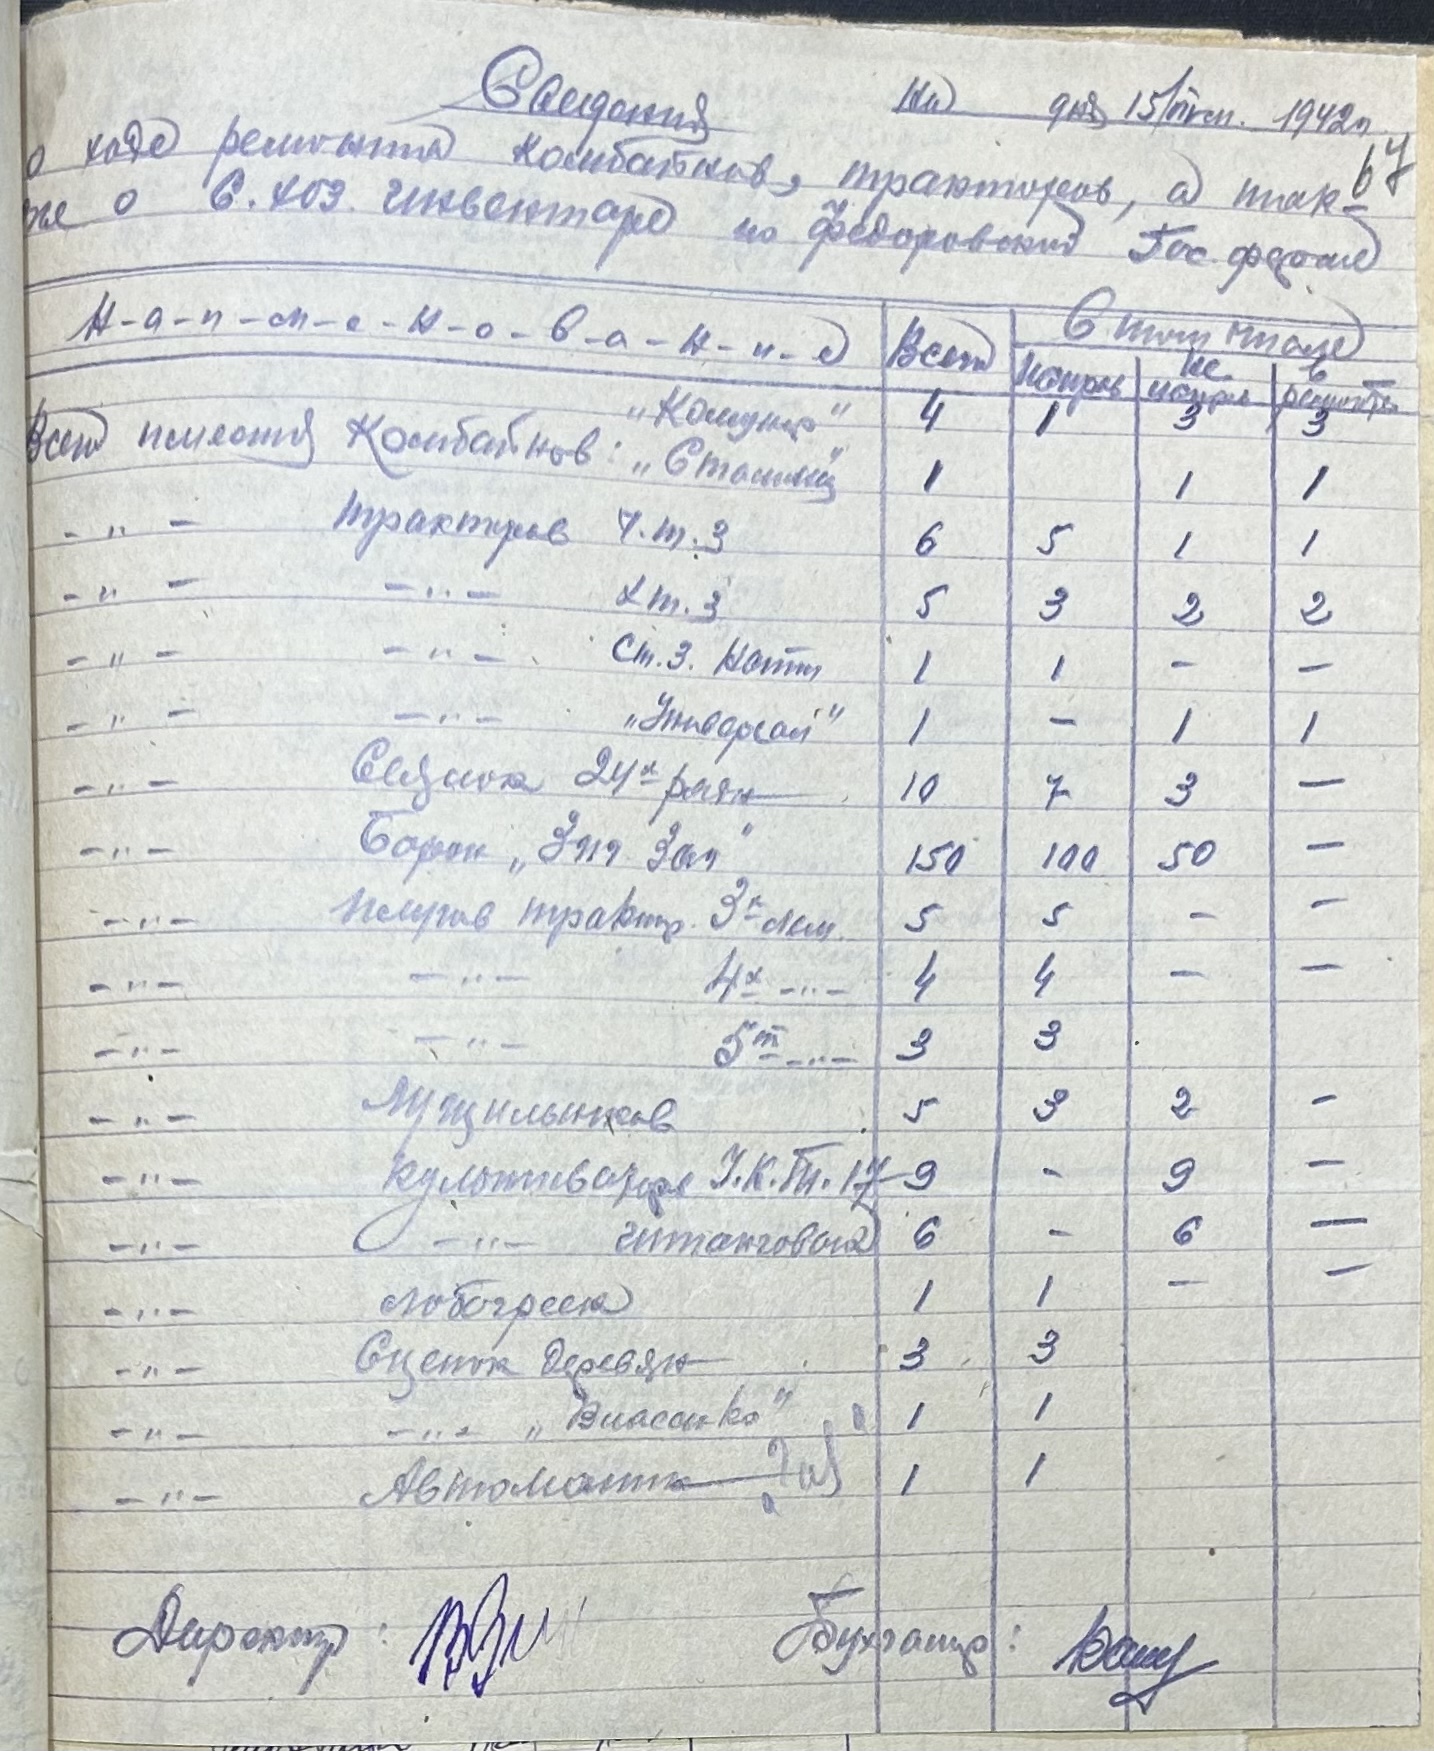 Сведения На дня 15/VII м. 1942 г.
67
о ходе ремонта комбайнов, тракторов, а так-
же о С.хоз. инвентаре по Федоровской Гос. ферме
Н-а-и-м-е-н-о-в-а-н-и-е Всего В том числе
исправ не исправ в ремонте
Всего имеется Комбайнов: "Комунар" 4 1 3 3
"Сталинец" 1 1 1
-"- Тракторов Ч.Т.З 6 5 1 1
-"- -"- Х.Т.З 5 3 2 2
-"- -"- Ст.З. Натти 1 1 - -
-"- -"- "Универсал" 1 - 1 1
-"- Сеялок 24х рядн 10 7 3 -
-"- Борон "Зиг Заг" 150 100 50 -
-"- Плугов трактор. 3х лем. 5 5 - -
-"- -"- 4х -"- 4 4 - -
-"- -"- 5ти -"- 3 3
-"- Лущильников 5 3 2 -
-"- Культиваторов У.К.Т. 17 9 - 9 -
-"- -"- штанговой 6 - 6 -
-"- лобогреек 1 1 - -
-"- Сцепок деревян 3 3
-"- -"- "Власенко" 1 1
-"- Автомашин 1 1
Директор: Бухгалтер: